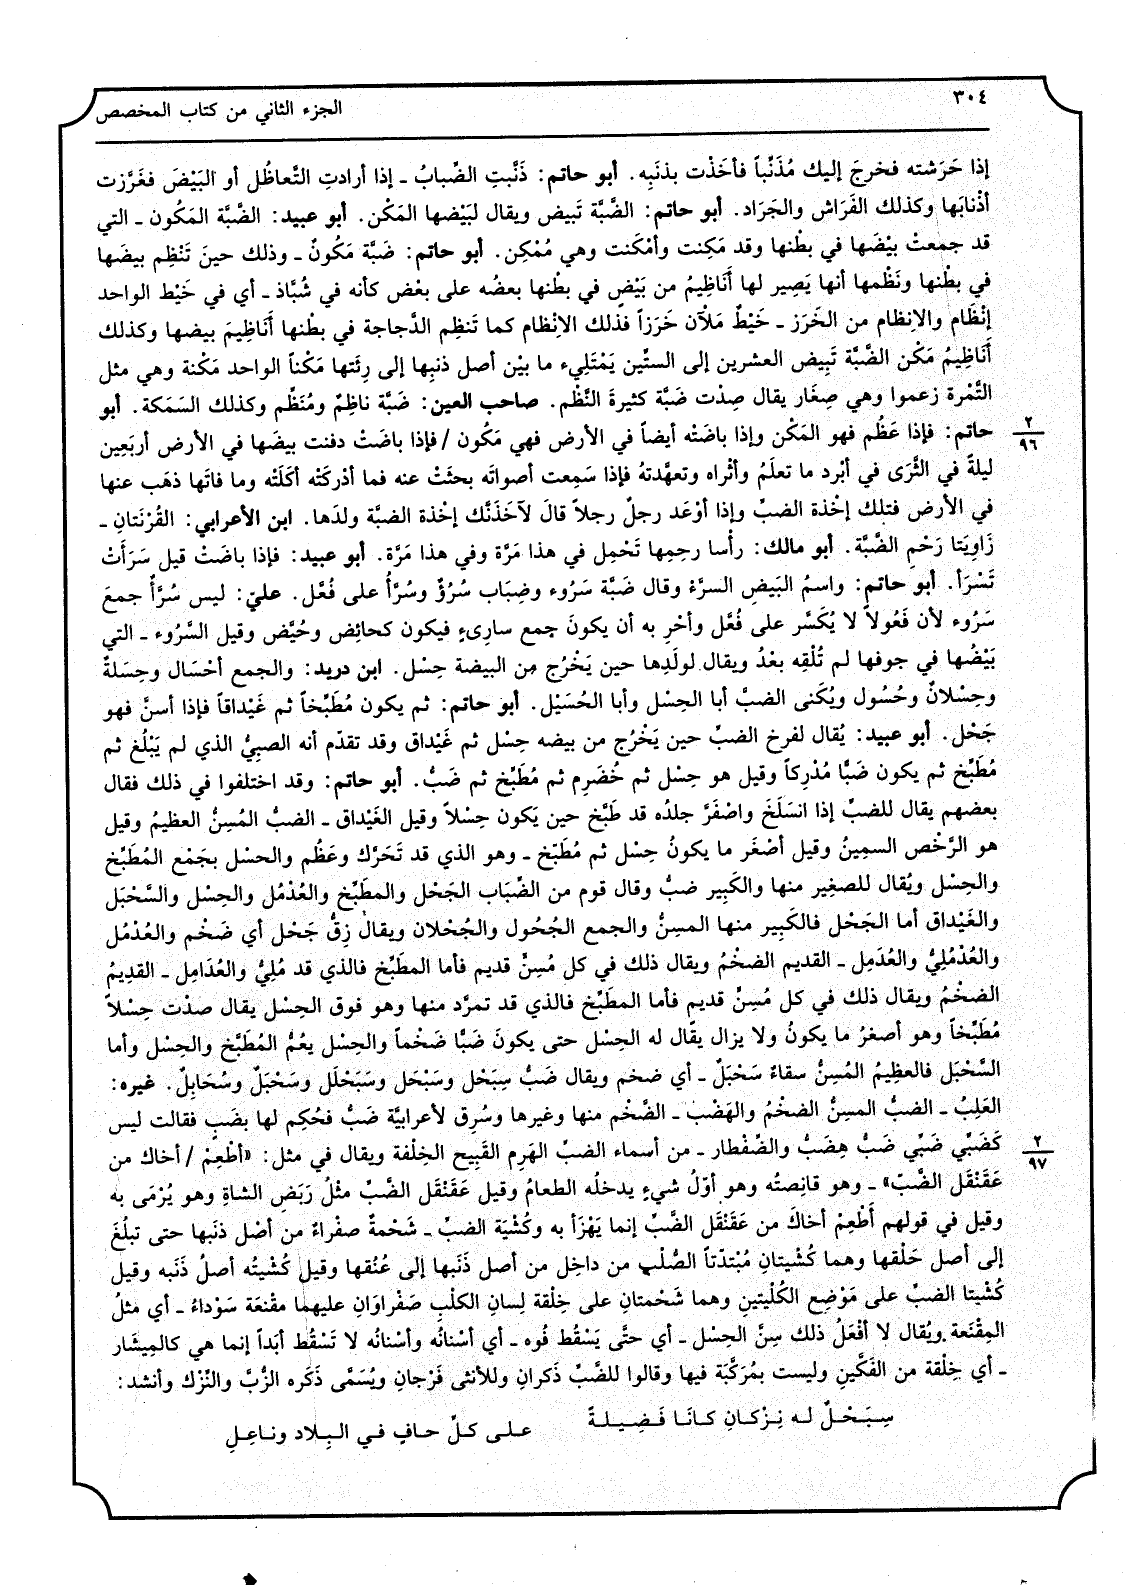 ٣٠٤
الجزء الثاني من كتاب المخصص
إذا حَرَشته فخرجَ إليك مُذَنِّباً فأخَذْت بذنَبِه. أبو حاتم: ذَنَّبتِ الضِّبابُ ـ إذا أرادتِ التَّعاظُل أو البَيْضَ فغَرَّزت
أذْنابَها وكذلك الفَرَاش والجَرَاد. أبو حاتم: الضَّبَّة تَبيض ويقال لبَيْضها المَكْن. أبو عبيد: الضَّبَّة المَكُون ـ التي
قد جمعتْ بيْضَها في بطْنها وقد مَكِنت وأمْكَنت وهي مُمْكِن. أبو حاتم: ضَبَّة مَكُونٌ ـ وذلك حينَ تَنْظِم بيضَها
في بطْنها ونَظْمها أنها يَصِير لها أَنَاظِيمُ من بَيْضٍ في بطْنها بعضُه على بعْض كأنه في شُبَّاذ ـ أي في خَيْط الواحد
إنْظَام والإنظام من الخَرَز ـ خَيْطٌ مَلْآن خَرَزاً فذلك الإنْظام كما تَنظِم الدَّجاجة في بطْنها أَنَاظِيمَ بيضها وكذلك
أَنَاظِيمُ مَكْن الضَّبَّة تَبِيض العشرين إلى الستِّين يَمْتَلِيء ما بيْن أصل ذنبِها إلى رِئَتها مَكْناً الواحد مَكْنة وهي مثل
التَّمْرة زعموا وهي صِغَار يقال صِدْت ضَبَّة كثيرةَ النَّظْم. صاحب العين: ضَبَّة ناظِمٌ ومُنَظِّم وكذلك السَمَكة. أبو
٢
٩٦
حاتم: فإذا عَظُم فهو المَكْن وإذا باضَتْه أيضاً في الأرض فهي مَكُون / فإذا باضَتْ دفنت بيضَها في الأرض أربَعِين
ليلةً في الثَّرَى في أبْرد ما تعلَمُ وأثْراه وتعهَّدتهُ فإذا سَمِعت أصواتَه بحثَتْ عنه فما أدْركَتْه أكَلَتْه وما فاتَها ذهَب عنها
في الأرض فتلك إخْذة الضبِّ وإذا أوْعَد رجلٌ رجلاً قالَ لآخَذَنَّك إخْذة الضبَّة ولدَها. ابن الأعرابي: القُرْنَتانِ ـ
زَاوِيَتا رَحْم الضَّبَّة. أبو مالك: رأسا رحِمِها تَحْمِل في هذا مَرَّة وفي هذا مَرَّة. أبو عبيد: فإذا باضَتْ قيل سَرَأتْ
تَسْرَأ. أبو حاتم: واسمُ البَيضِ السرْءُ وقال ضَبَّة سَرُوء وضِبَاب سُرُؤٌ وسُرَّأ على فُعَّل. عليّ: ليس سُرَّأٌ جمعَ
سَرُوء لأن فَعُولاً لا يُكَسَّر على فُعَّل وأحْرِ به أن يكونَ جمع سارِىءٍ فيكون كحائِض وحُيَّض وقيل السَّرُوء ـ التي
بَيْضُها في جوفها لم تُلْقِه بعْدُ ويقال لولَدِها حين يَخْرُج من البيضة حِسْل. ابن دريد: والجمع أحْسَال وحِسَلةٌ
وحِسْلانٌ وحُسُول ويُكَنى الضبَّ أبا الحِسْل وأبا الحُسَيْل. أبو حاتم: ثم يكون مُطَبِّخاً ثم غَيْداقاً فإذا أسنَّ فهو
جَحْل. أبو عبيد: يُقال لفرخ الضبِّ حين يَخْرُج من بيضه حِسْل ثم غَيْداق وقد تقدّم أنه الصبِيُّ الذي لم يَبْلُغ ثم
مُطَبِّخ ثم يكون ضَبًّا مُدْرِكاً وقيل هو حِسْل ثم خُضَرِم ثم مُطَبِّخ ثم ضَبُّ. أبو حاتم: وقد اختلفوا في ذلك فقال
بعضهم يقال للضبِّ إذا انسَلَخَ واصْفَرَّ جلدُه قد طَبَّخ حين يَكون حِسْلاً وقيل الغَيْداق ـ الضبُّ المُسِنُّ العظيمُ وقيل
هو الرَّخْص السمِينُ وقيل أصْغَر ما يكونُ حِسْل ثم مُطَبِّخ ـ وهو الذي قد تَحَرَّك وعَظُم والحسْل بجَمْع المُطَبِّخ
والحِسْل ويُقال للصغِير منها والكَبِير ضبُّ وقال قوم من الضِّبَاب الجَحْل والمطَبِّخ والعُدْمُل والحِسْل والسَّحْبَل
والغَيْداق أما الجَحْل فالكَبِير منها المسنُّ والجمع الجُحُول والجُحْلان ويقال زِقُّ جَحْل أي ضَخْم والعُدْمُل
والعُدْمُلِيُّ والعُدَمِل ـ القديم الضخْمُ ويقال ذلك في كل مُسِنٍّ قديم فأما المطَبِّخ فالذي قد مُلِيُّ والعُدَامِل ـ القدِيمُ
الضخْمُ ويقال ذلك في كل مُسِنّ قديم فأما المطَبِّخ فالذي قد تمرَّد منها وهو فوق الحِسْل يقال صدْت حِسْلاً
مُطَبِّخاً وهو أصغرُ ما يكونُ ولا يزال يقّال له الحِسْل حتى يكونَ ضَبًّا ضَخْماً والحِسْل يعُمُّ المُطَبَّخ والحِسْل وأما
السَّحْبَل فالعظِيمُ المُسِنُّ سقاءٌ سَحْبَلٌ ـ أي ضخم ويقال ضَبُّ سِبَحْل وسَبْحَل وسَبَحْلَل وسَحْبَلٌ وسُحَابِلٌ. غيره:
العَلِبُ ـ الضبُّ المسنُّ الضخْمُ والهَضْب ـ الضَّخْم منها وغيرها وسُرِق لأعرابيَّة ضَبُّ فحُكِم لها بضَبٍ فقالت ليس
٢
٩٧
كَضَبِّي ضَبِّي ضَبُّ هِضَبُّ والضِّفْطار ـ من أسماء الضبِّ الهَرِم القَبِيح الخِلْفة ويقال في مثل: «أطْعِمْ / أخاك من
عَقَنْقَل الضَّبّ» ـ وهو قانِصتُه وهو أوّلُ شيءٍ يدخلُه الطعامُ وقيل عَقَنْقَل الضَّبِّ مثْلُ رَبَضِ الشاةِ وهو يُرْمَى به
وقيل في قولهم أَطْعِمْ أخاكَ من عَقَنْقَل الضَّبِّ إنما يَهْزَأ به وكُشْيَة الضبِّ ـ شَحْمةٌ صفْراءُ من أصْل ذنَبها حتى تبلُغَ
إلى أصل حَلْقها وهما كُشْيتانِ مُبْتدّتاً الصُّلْبِ من داخِل من أصل ذَنَبها إلى عُنُقها وقيل كُشْيتُه أصلُ ذَنَبه وقيل
كُشْيتا الضبِّ على مَوْضِع الكُلْيتينِ وهما شَحْمتانِ على خِلْقة لِسانِ الكلْبِ صَفْراوَانِ عليهما مقْنَعة سَوْداءُ ـ أي مثلُ
المِقْنَعة ويُقال لا أفْعَلُ ذلك سِنَّ الحِسْل ـ أي حتَّى يَسْقُط فُوه ـ أي أسْنانُه وأسْنانُه لا تَسْقُط أبَداً إنما هي كالمِيشَار
ـ أي خِلْقة من الفَكَّينِ وليست بمُرَكَّبَة فيها وقالوا للضَّبِّ ذَكرانِ وللأنثى فَرْجانِ ويُسَمَّى ذَكَره الزُّبَّ والنِّزْك وأنشد:
سِبَحْلٌ له نِزْكانِ كانَا فَضِيلةً على كلِّ حافٍ في البِلاد وناعِلِ